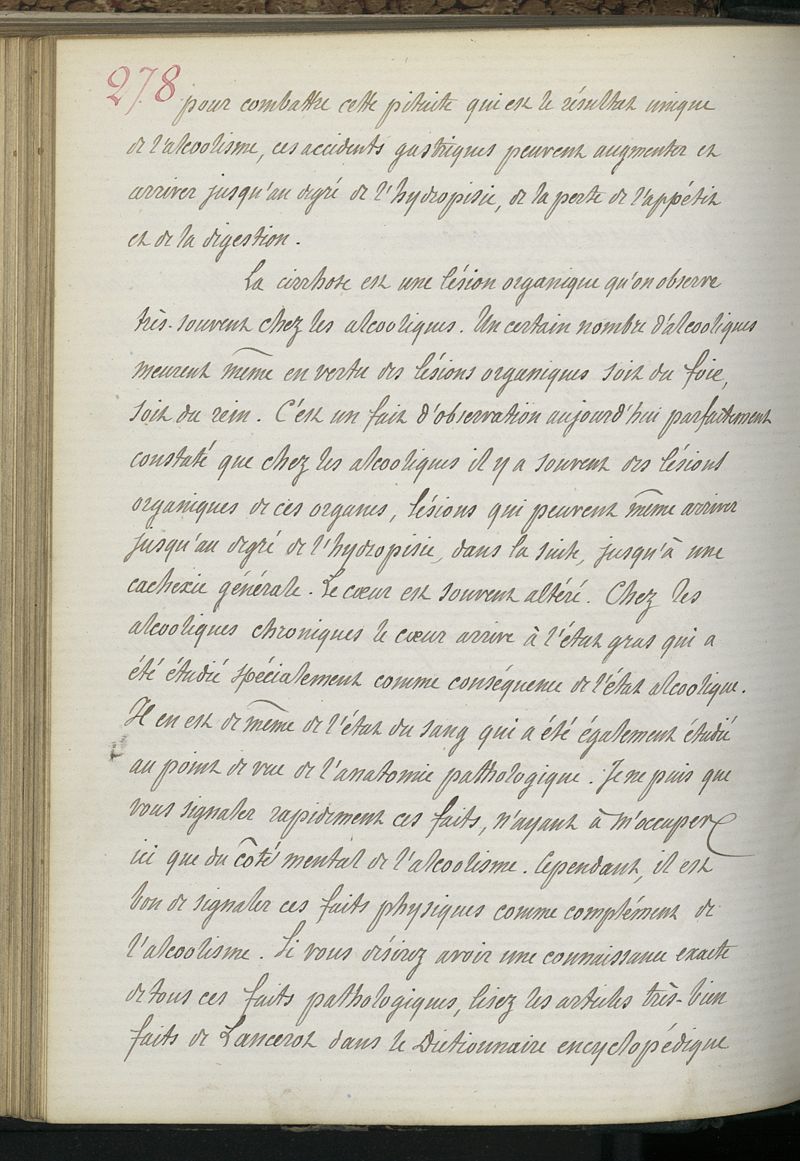 278
pour combattre cette pituite qui est le résultat unique
de l'alcoolisme, ces accidents gastriques peuvent augmenter et
arriver jusqu'au degré de l'hydropisie, de la perte de l'appétit
et de la digestion.
La cirrhose est une lésion organique qu'on observe
très-souvent chez les alcooliques. Un certain nombre d'alcooliques
meurent même en vertu des lésions organiques soit du foie,
soit du rein. C'est un fait d'observation aujourd'hui parfaitement
constaté que chez les alcooliques il y a souvent des lésions
organiques de ces organes, lésions qui peuvent même arriver
jusqu'au degré de l'hydropisie, dans la suite, jusqu'à une
cachexie générale. Le cœur est souvent altéré. Chez les
alcooliques chroniques le cœur arrive à l'état gras qui a
été étudié spécialement comme conséquence de l'état alcoolique.
Il en est de même de l'état du sang qui a été également étudié
au point de vue de l'anatomie pathologique. Je ne puis que
vous signaler rapidement ces faits, n'ayant à m'occuper
ici que du côté mental de l'alcoolisme. Cependant, il est
bon de signaler ces faits physiques comme complément de
l'alcoolisme. Si vous désirez avoir une connaissance exacte
de tous ces faits pathologiques, lisez les articles très-bien
faits de Lancerot dans le Dictionnaire encyclopédique